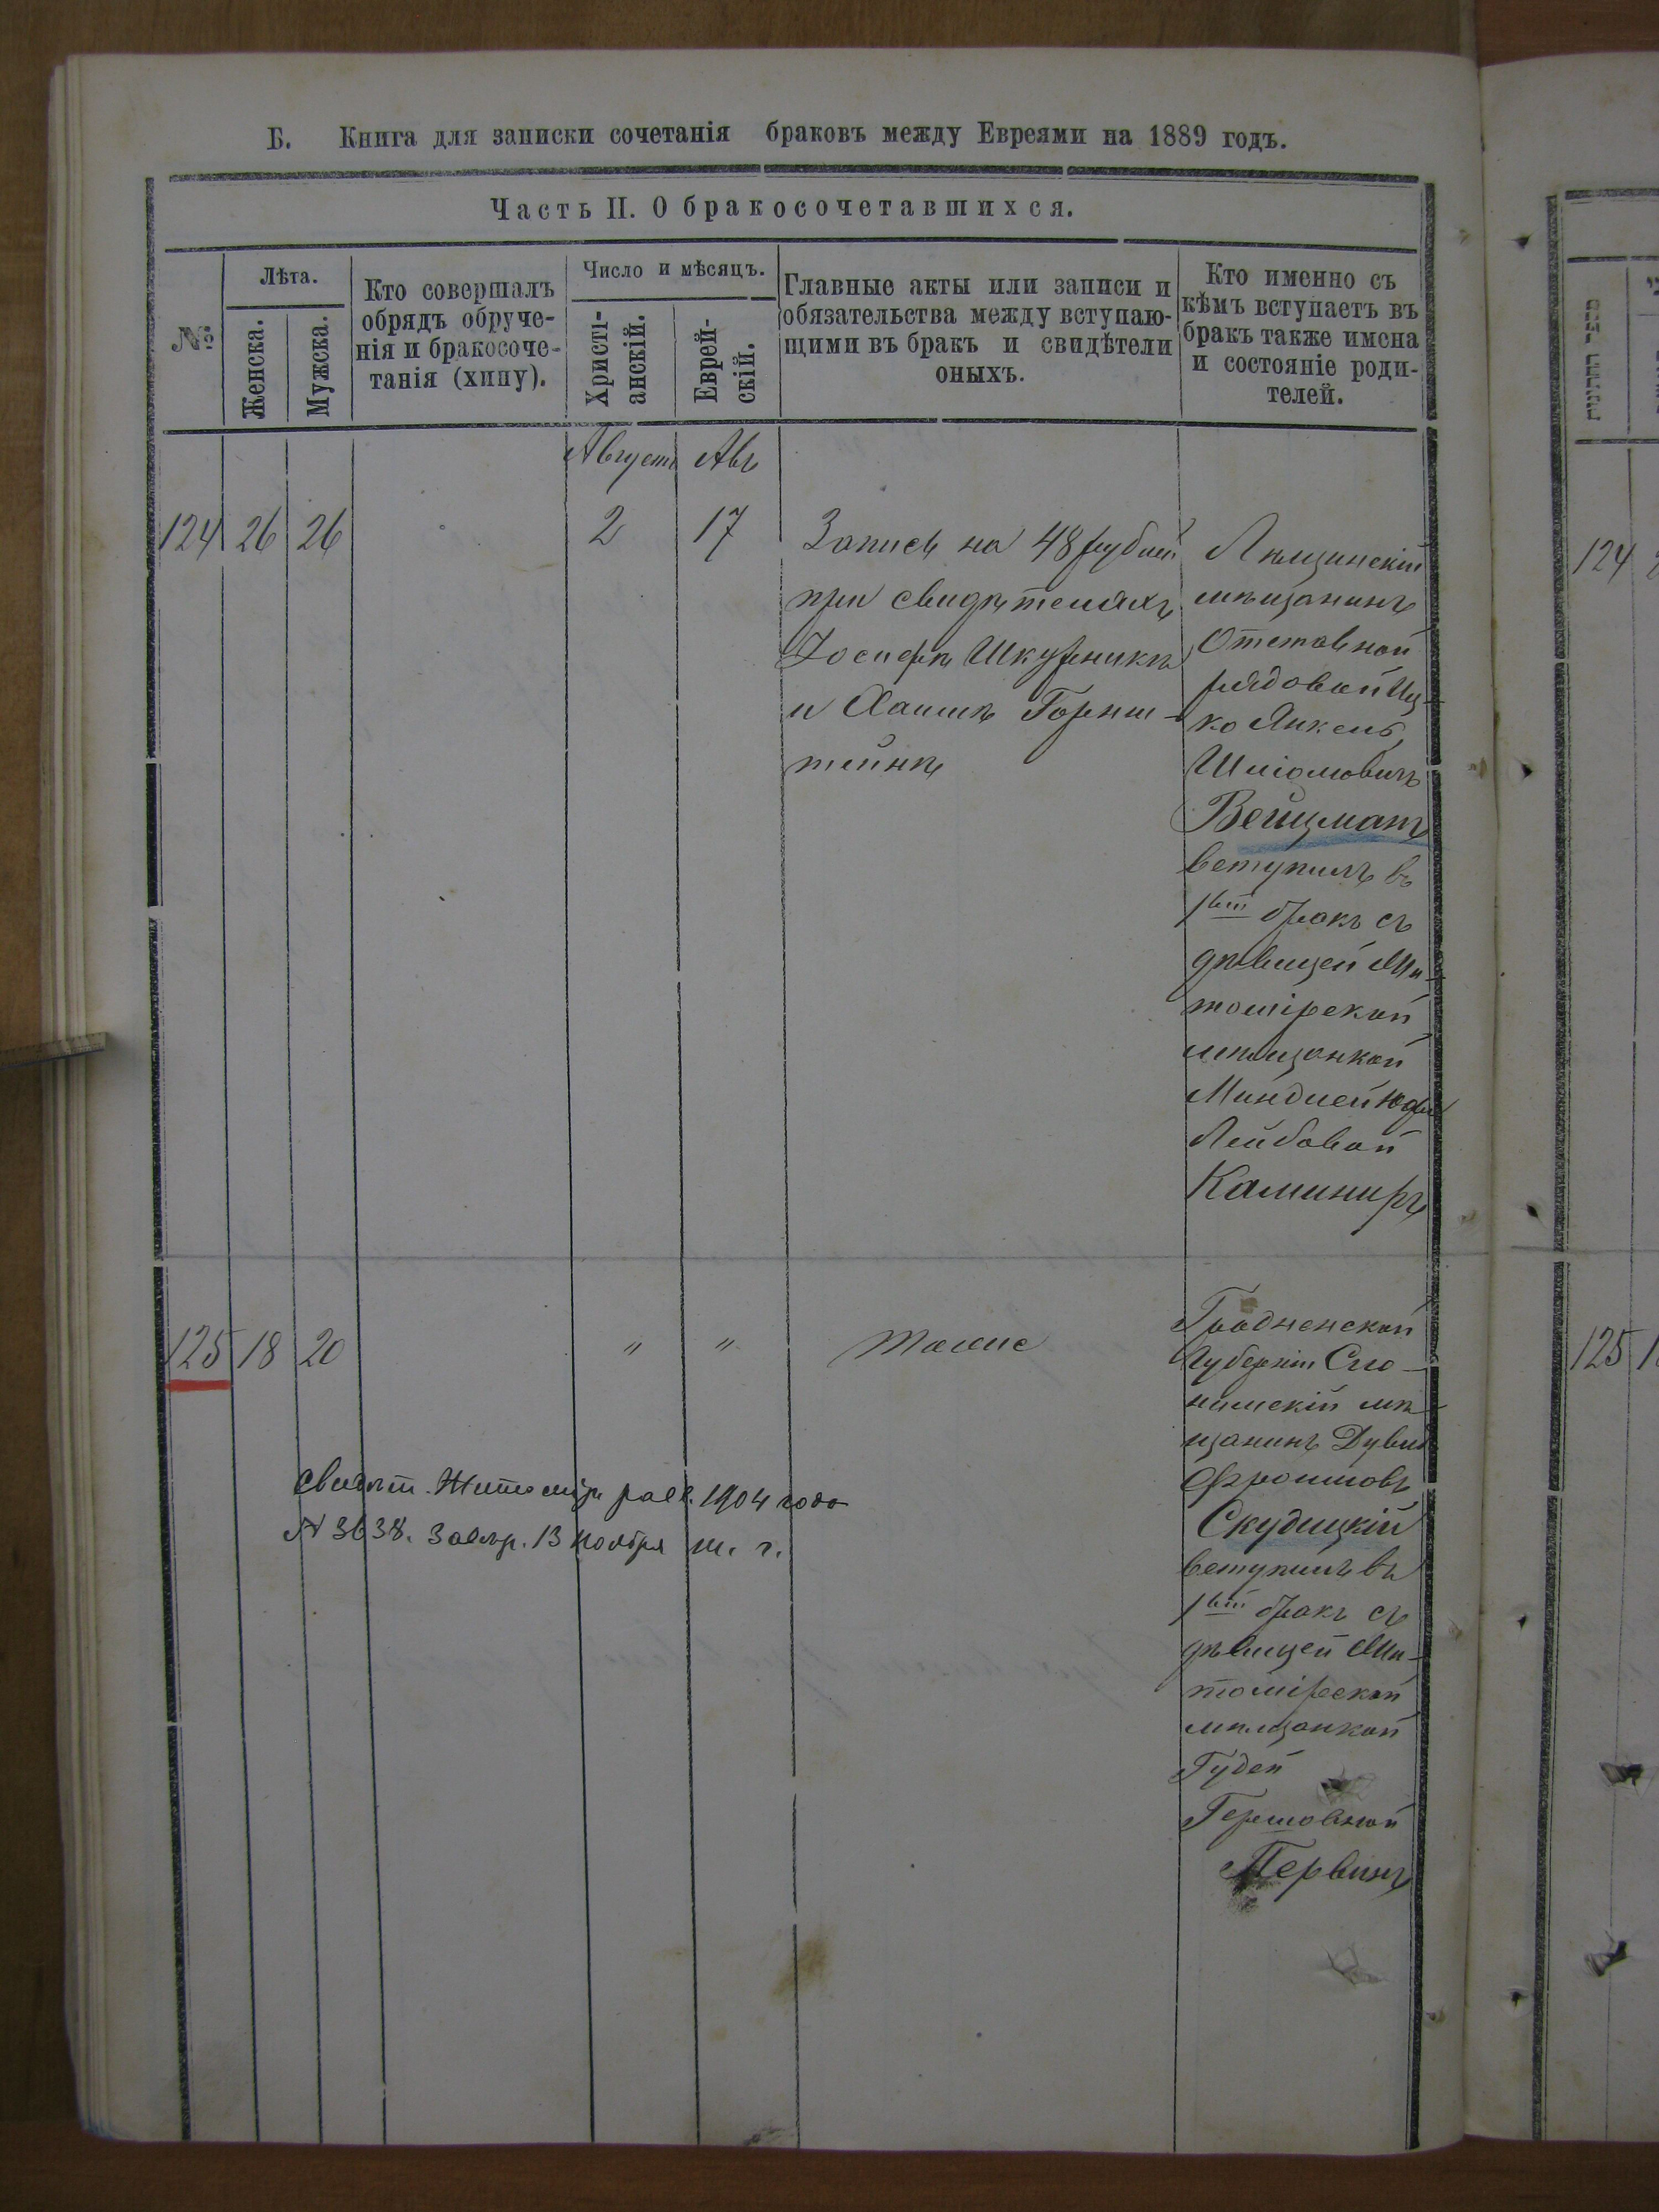 Б. Книга для записки сочетанія браковъ между Евреями на 1889 годъ.
Часть II. О бракосочетавшихся.
№
Лѣта.
Женска.
Мужска.
Кто совершалъ
обрядъ обруче-
нія и бракосоче-
танія (хипу).
Число и мѣсяцъ.
Христі-
анскій.
Еврей-
скій.
Главные акты или записи и
обязательства между вступаю-
щими въ бракъ и свидѣтели
оныхъ.
Кто именно съ
кѣмъ вступаетъ въ
бракъ также имена
и состояніе роди-
телей.
Августъ Авъ
124 26 26 2 17
Запись на 48 рублей
при свидѣтеляхъ
Іосифѣ Шкурникѣ
и Хаимѣ Горнш-
тейнѣ
мѣщанинъ
Отставной
рядовой Иц-
ко Янкель
Шліомовичъ
Вейцманъ
вступилъ въ
1вый бракъ съ
дѣвицей Жи-
томірской
мѣщанкой
Миндлей
Лейбовой
Каминиръ
125 18 20 " " Тоже
Гродненской
Губерніи Сло-
нимскій мѣ
щанинъ Дувид
Фроимовъ
Скудицкій
вступилъ въ
1вый бракъ съ
дѣвицей Жи-
томірской
мѣщанкой
Гудей
Гершовной
Первинъ
Свидѣт. Житомір. равв. 1904 года
№ 3638. Завѣр. 13 ноября т. г.
124
125